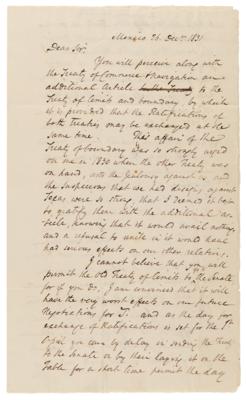 Mexico 26. Dec.r 1831
Dear Sir,
You will perceive along with
the Treaty of Commerce & Navigation an
additional Article to the
Treaty of Limits and boundary, by which
it is provided that the Ratifications of
both treaties may be exchanged at the
same time. This affair of the
Treaty of boundary was so strongly urged
on me in 1830 when the other Treaty was
on hand, and the jealousy against us and
the suspicions that we had designs against
Texas were so strong, that I deemed it best
to gratify them with the additional ar-
ticle, knowing that it would avail nothing,
and a refusal to unite in it would have
had serious effects on our other relations.
I cannot believe that you will
permit the old Treaty of Limits to go to the Senate
for if you do, I am convinced that it will
have the very worst effects on our future
Negotiations for T. and as the day for
exchange of Ratifications is set for the 1st
April you can by delay in sending the Treaty
to the Senate or by their laying it on the
Table for a short time permit the day